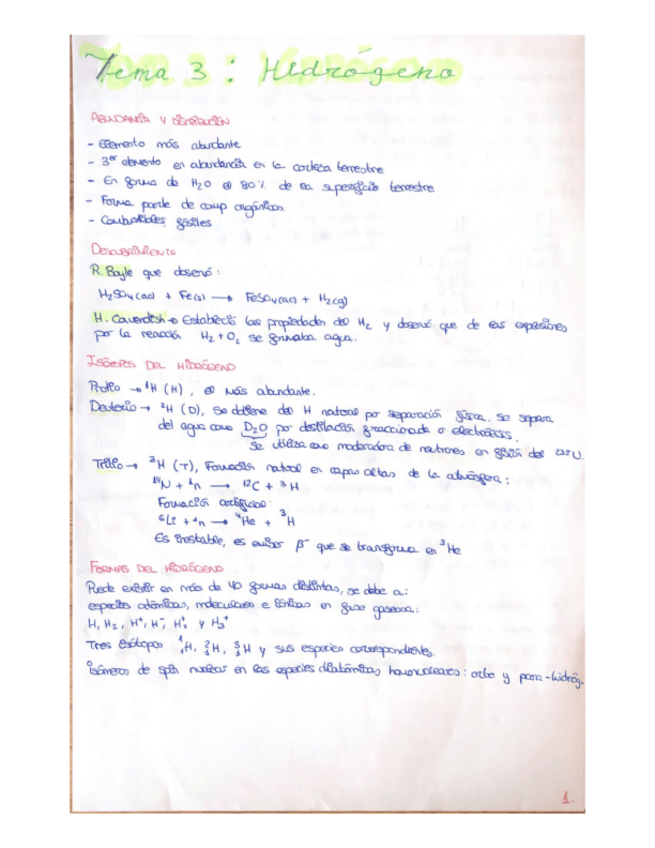 Tema 3 : Hidrógeno
ABUNDANCIA Y DISTRIBUCIÓN
- Elemento más abundante
- 3er elemento en abundancia en la corteza terrestre
- En forma de H₂O el 80% de la superficie terrestre
- Forma parte de comp orgánicos
- Combustibles fósiles
DESCUBRIMIENTO
R. Boyle que observó :
H₂SO₄(ac) + Fe(s) → FeSO₄(ac) + H₂(g)
H. Cavendish → Estableció las propiedades del H₂ y observó que de las explosiones
por la reacción H₂ + O₂ se formaba agua.
ISÓTOPOS DEL HIDRÓGENO
Protio → ¹H (H), el más abundante.
Deuterio → ²H (D), se obtiene del H natural por separación física. Se separa
del agua como D₂O por destilación fraccionada o electrólisis.
Se utiliza como moderadora de neutrones en fisión del 235U.
Tritio → ³H (T), Formación natural en capas altas de la atmósfera :
¹⁴N + ¹n → ¹²C + ³H
Formación artificial:
⁶Li + ¹n → ⁴He + ³H
Es inestable, es emisor β⁻ que se transforma en ³He
FORMAS DEL HIDRÓGENO
Puede existir en más de 40 formas distintas, se debe a:
especies atómicas, moleculares e iónicas en fase gaseosa:
H, H₂, H⁺, H⁻, H₂⁺ y H₃⁺
Tres isótopos ¹₁H, ²₁H, ³₁H y sus especies correspondientes.
isómeros de spin nuclear en las especies diatómicas, homonucleares : orto y para-hidróg.
1.